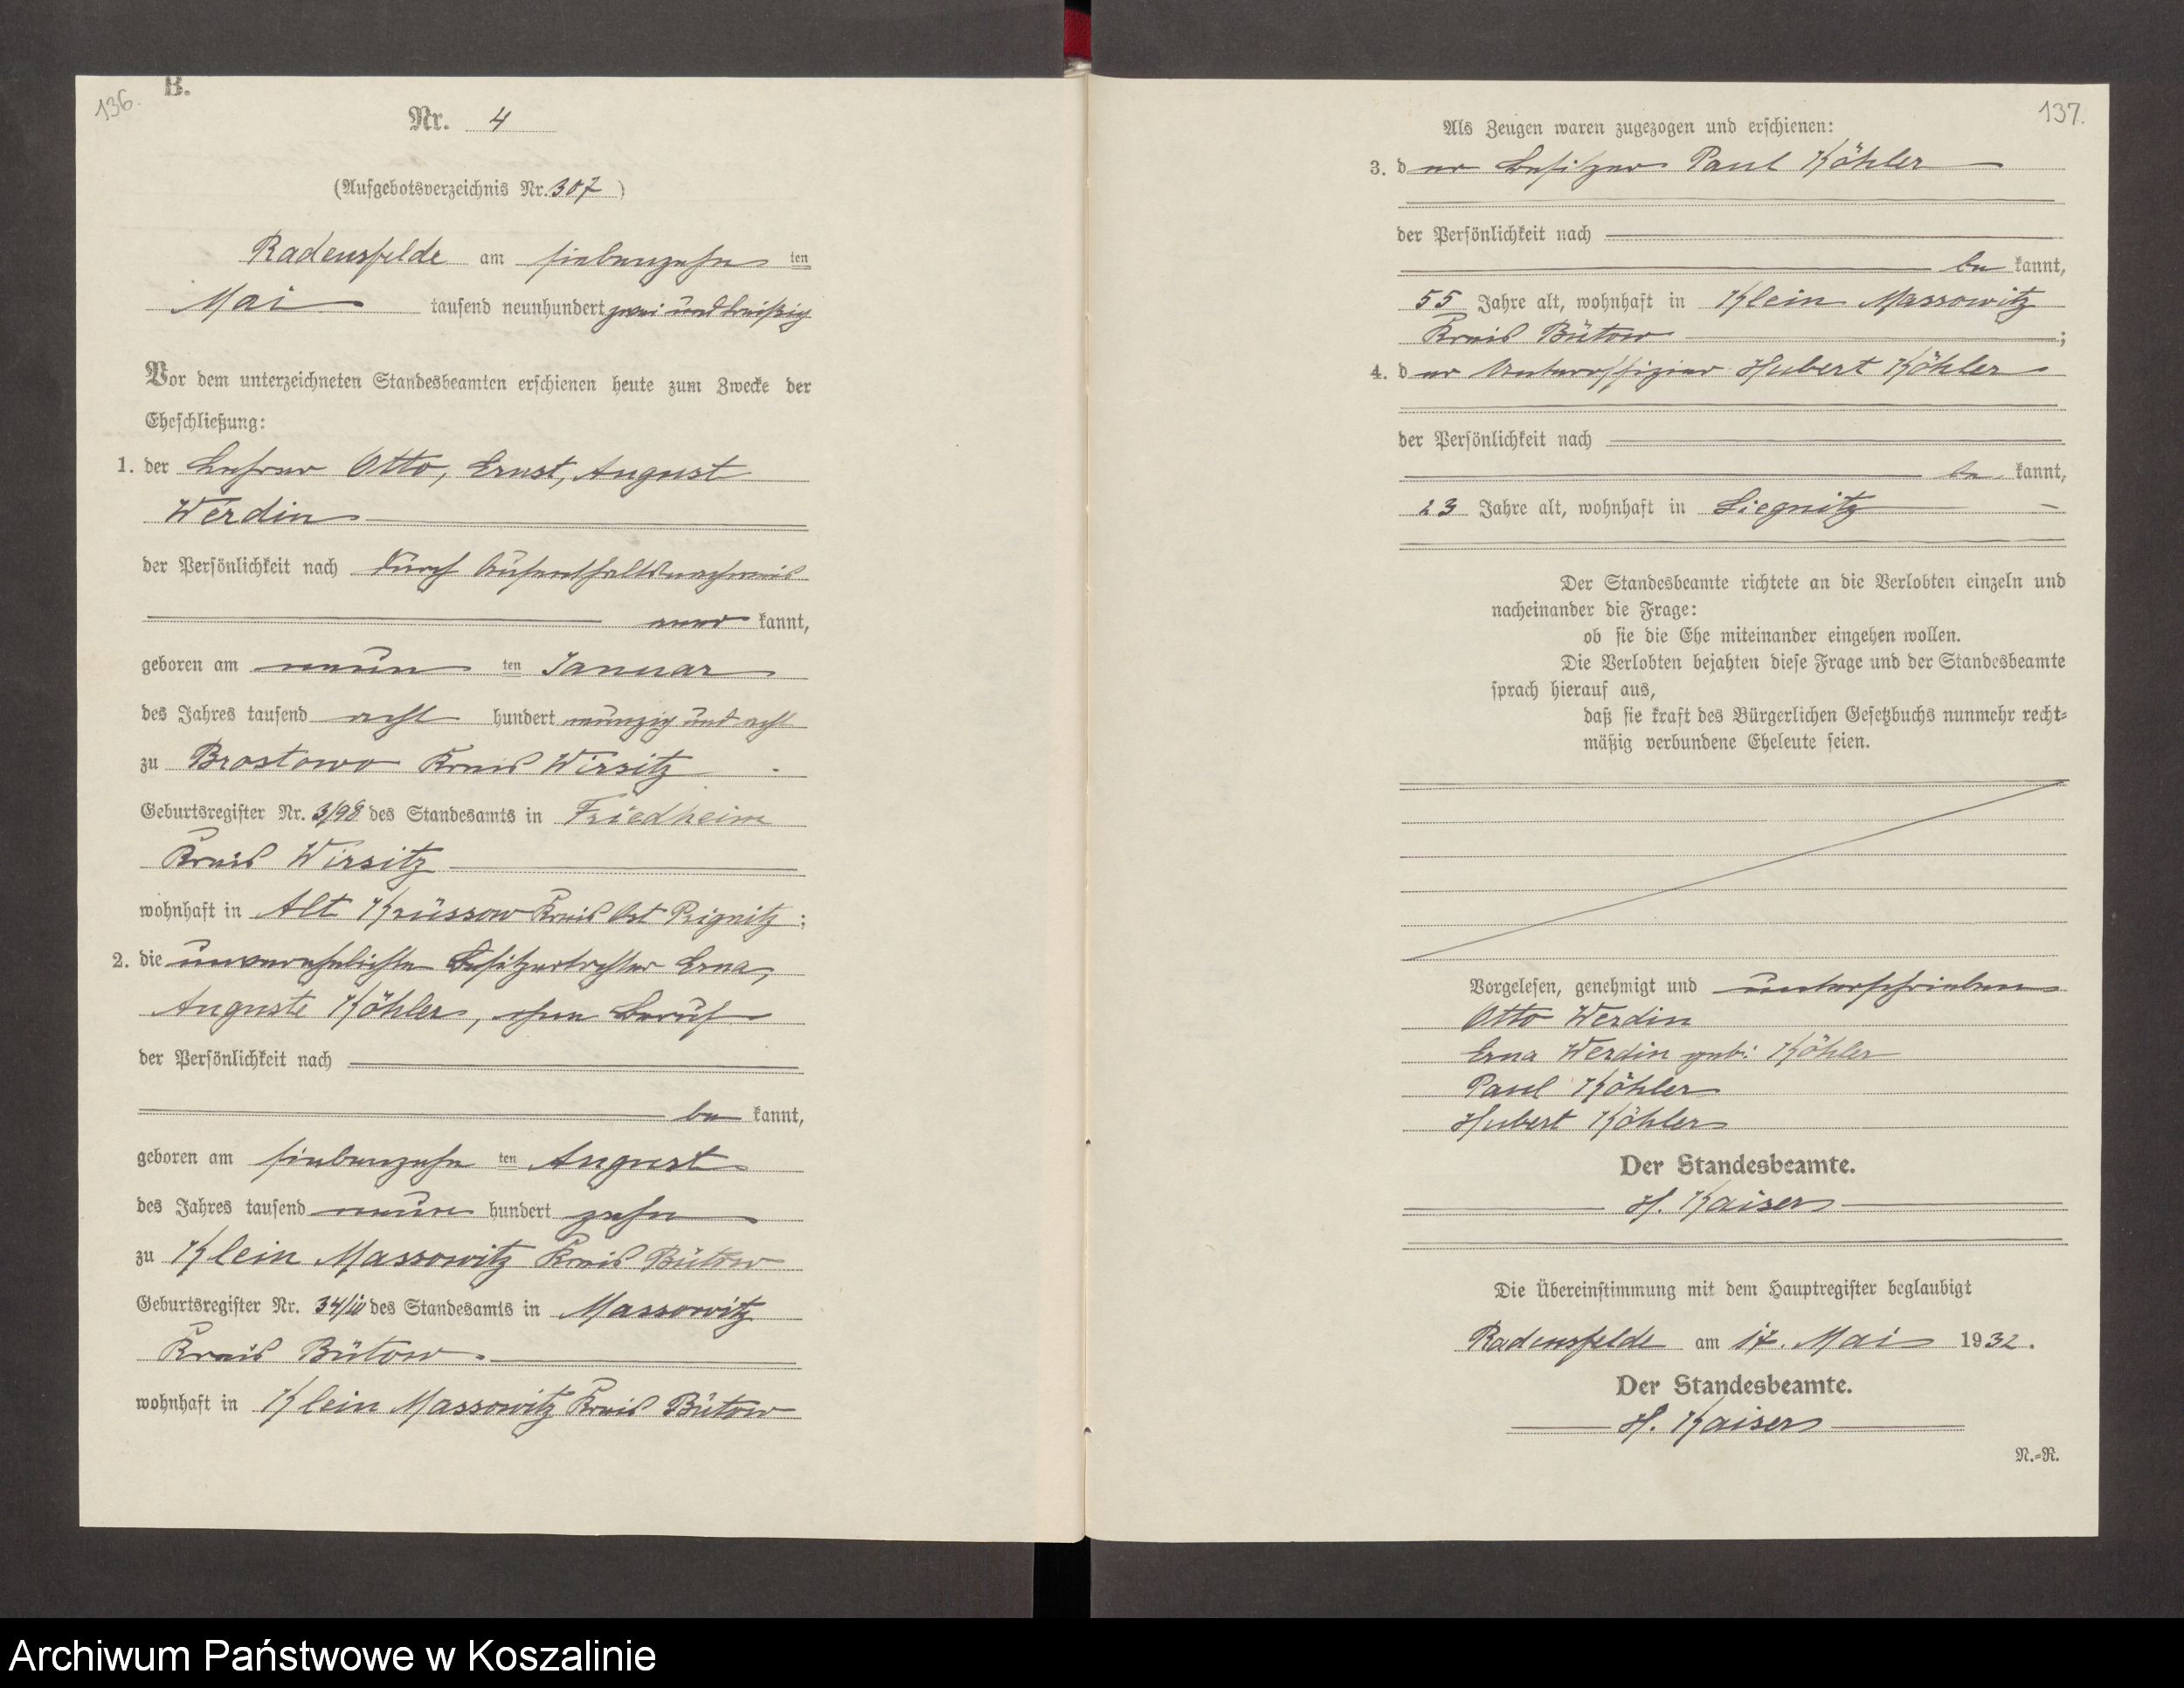 136.
B.
Nr. 4
(Aufgebotsverzeichnis Nr. 307)
Radensfelde am siebenzehn ten
Mai tausend neunhundert zwei und dreißig
Vor dem unterzeichneten Standesbeamten erschienen heute zum Zwecke der
Eheschließung:
1. der Lehrer Otto, Ernst, August
Werdin
der Persönlichkeit nach durch Aufenthaltsnachweis
aner kannt,
geboren am neun ten Januar
des Jahres tausend acht hundert neunzig und acht
zu Brostowo Kreis Wirsitz
Geburtsregister Nr. 3/98 des Standesamts in Friedheim
Kreis Wirsitz
wohnhaft in Alt Krüssow Kreis Ost Prignitz;
2. die unverehelichte Besitzertochter Erna,
Auguste Köhler, ohne Beruf
der Persönlichkeit nach
be kannt,
geboren am siebenzehn ten August
des Jahres tausend neun hundert zehn
zu Klein Massowitz Kreis Bütow
Geburtsregister Nr. 34/10 des Standesamts in Massowitz
Kreis Bütow.
wohnhaft in Klein Massowitz Kreis Bütow
137.
Als Zeugen waren zugezogen und erschienen:
3. d er Besitzer Paul Köhler
der Persönlichkeit nach
be kannt,
55 Jahre alt, wohnhaft in Klein Massowitz
Kreis Bütow ;
4. d er Unteroffizier Hubert Köhler
der Persönlichkeit nach
be kannt,
23 Jahre alt, wohnhaft in Liegnitz
Der Standesbeamte richtete an die Verlobten einzeln und
nacheinander die Frage:
ob sie die Ehe miteinander eingehen wollen.
Die Verlobten bejahten diese Frage und der Standesbeamte
sprach hierauf aus,
daß sie kraft des Bürgerlichen Gesetzbuchs nunmehr recht-
mäßig verbundene Eheleute seien.
Vorgelesen, genehmigt und unterschrieben
Otto Werdin
Erna Werdin geb. Köhler
Paul Köhler
Hubert Köhler
Der Standesbeamte.
H. Kaiser
Die Übereinstimmung mit dem Hauptregister beglaubigt
Radensfelde am 17. Mai 1932.
Der Standesbeamte.
H. Kaiser
N.-R.
Archiwum Państwowe w Koszalinie